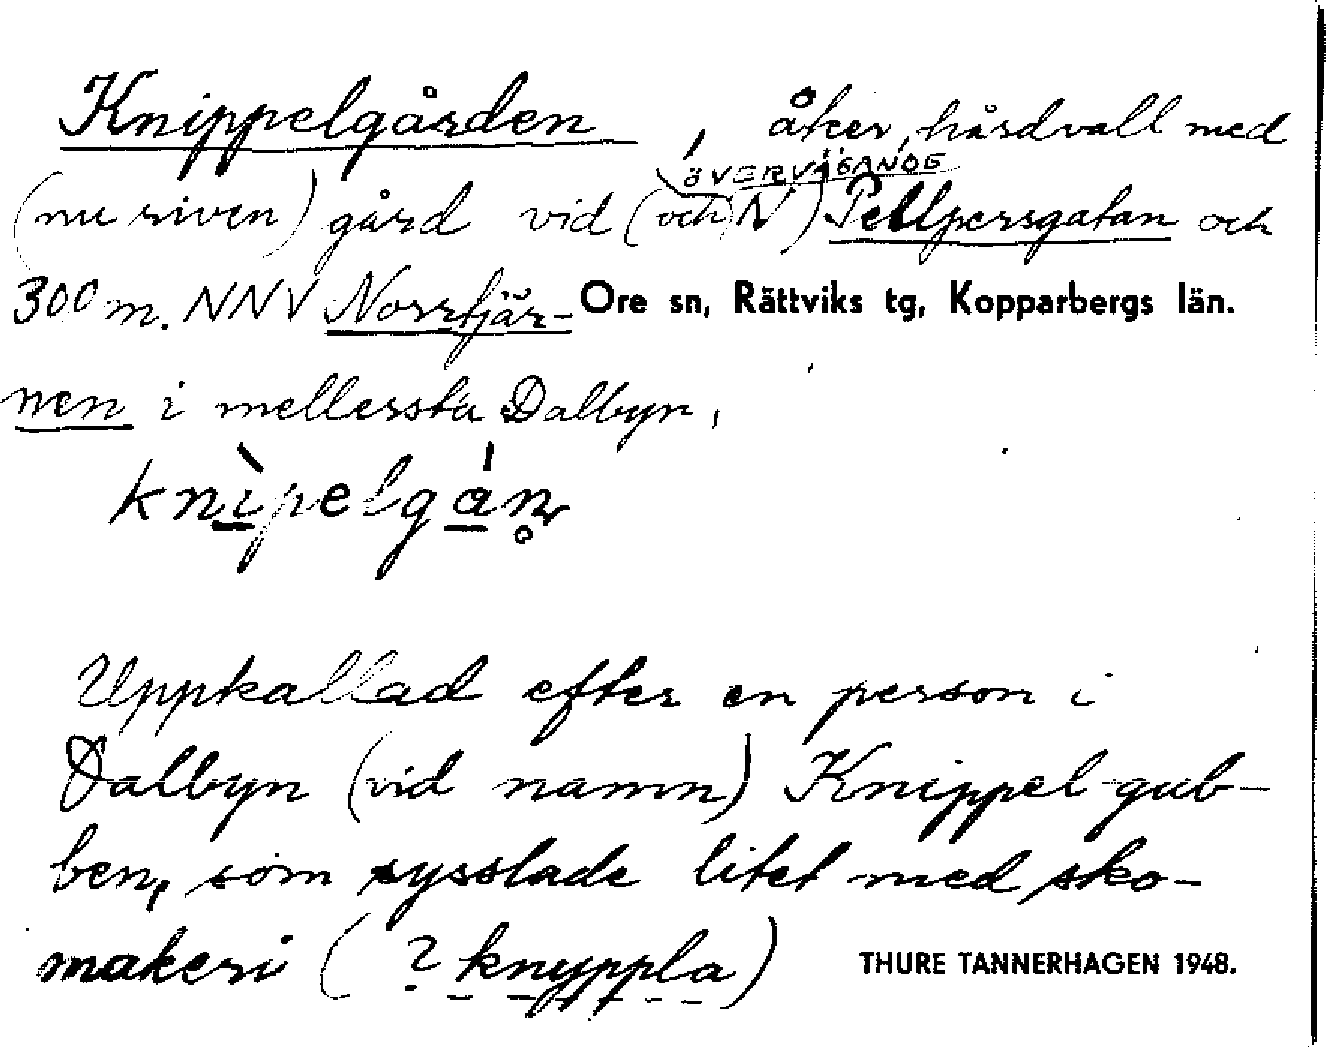 Knippelgården, åker, hårdvall med
ÖVERVÄGANDE
(nu riven) gård vid (och N) Pellpersgatan och
300 m. NNV Norrtjär- Ore sn, Rättviks tg, Kopparbergs län.
nen i mellersta Dalbyn,
knìpelgán
Uppkallad efter en person i
Dalbyn (vid namn) Knippel-gub-
ben, som sysslade litet med sko-
makeri (? knyppla)
THURE TANNERHAGEN 1948.